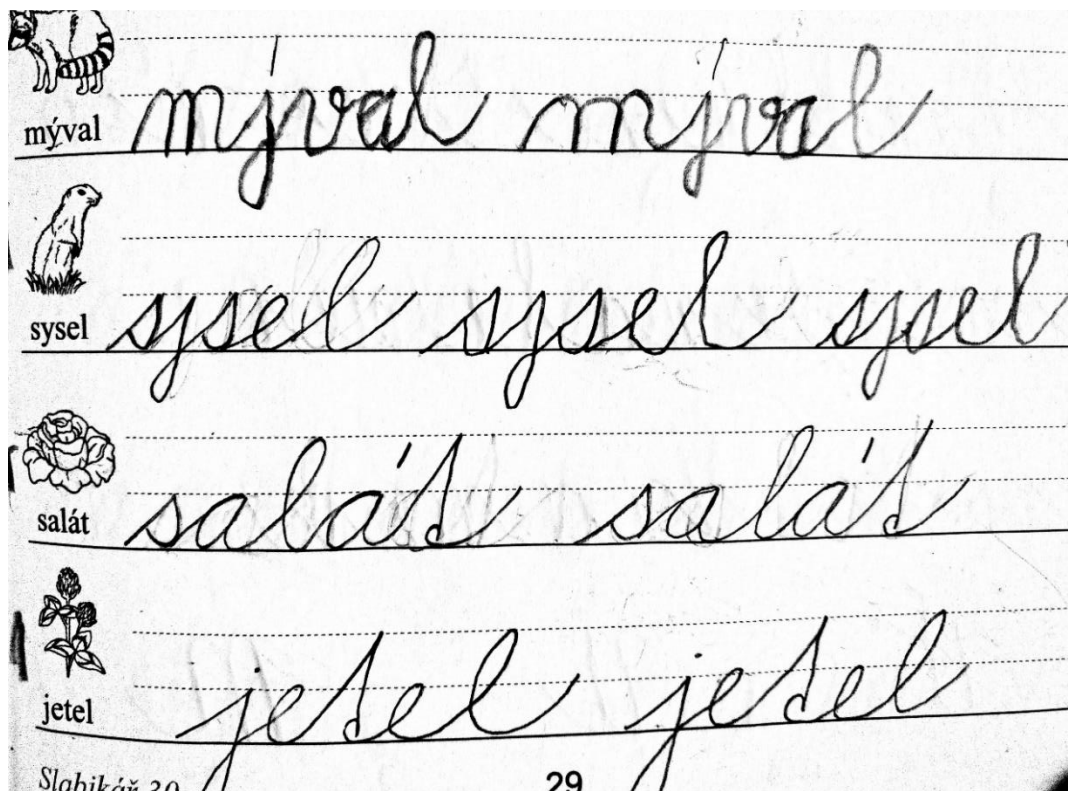 mýval mýval mýval
sysel sysel sysel sysel
salát salát salát
jetel jetel jetel
Slabikář 30 29